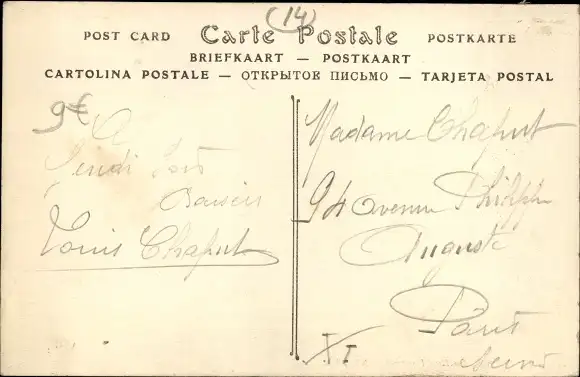 (14)
POST CARD Carte Postale POSTKARTE
BRIEFKAART — POSTKAART
CARTOLINA POSTALE — ОТКРЫТОЕ ПИСЬМО — TARJETA POSTAL
9€
A
Jeudi soir
Baisers
Louis Chaput
Madame Chaput
94 avenue Philippe
Auguste
Paris
XI